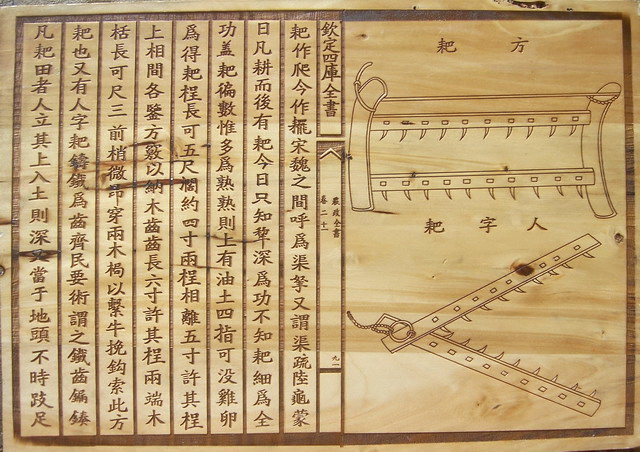 方耙
人字耙
欽定四庫全書
農政全書
卷二十一
耙作爬今作𦔯宋魏之間呼爲渠挐又謂渠疏陸龜蒙
曰凡耕而後有耙今日只知犂深爲功不知耙細爲全
功盖耙徧數惟多爲熟熟則上有油土四指可没雞卵
爲得耙桯長可五尺闊約四寸兩桯相離五寸許其桯
上相間各鑿方竅以納木齒齒長六寸許其桯兩端木
栝長可尺三前梢微昂穿兩木梮以繫牛挽鈎索此方
耙也又有人字耙鑄鐵爲齒齊民要術謂之鐵齒𨫒榛
凡耙田者人立其上入土則深又當于地頭不時跂足